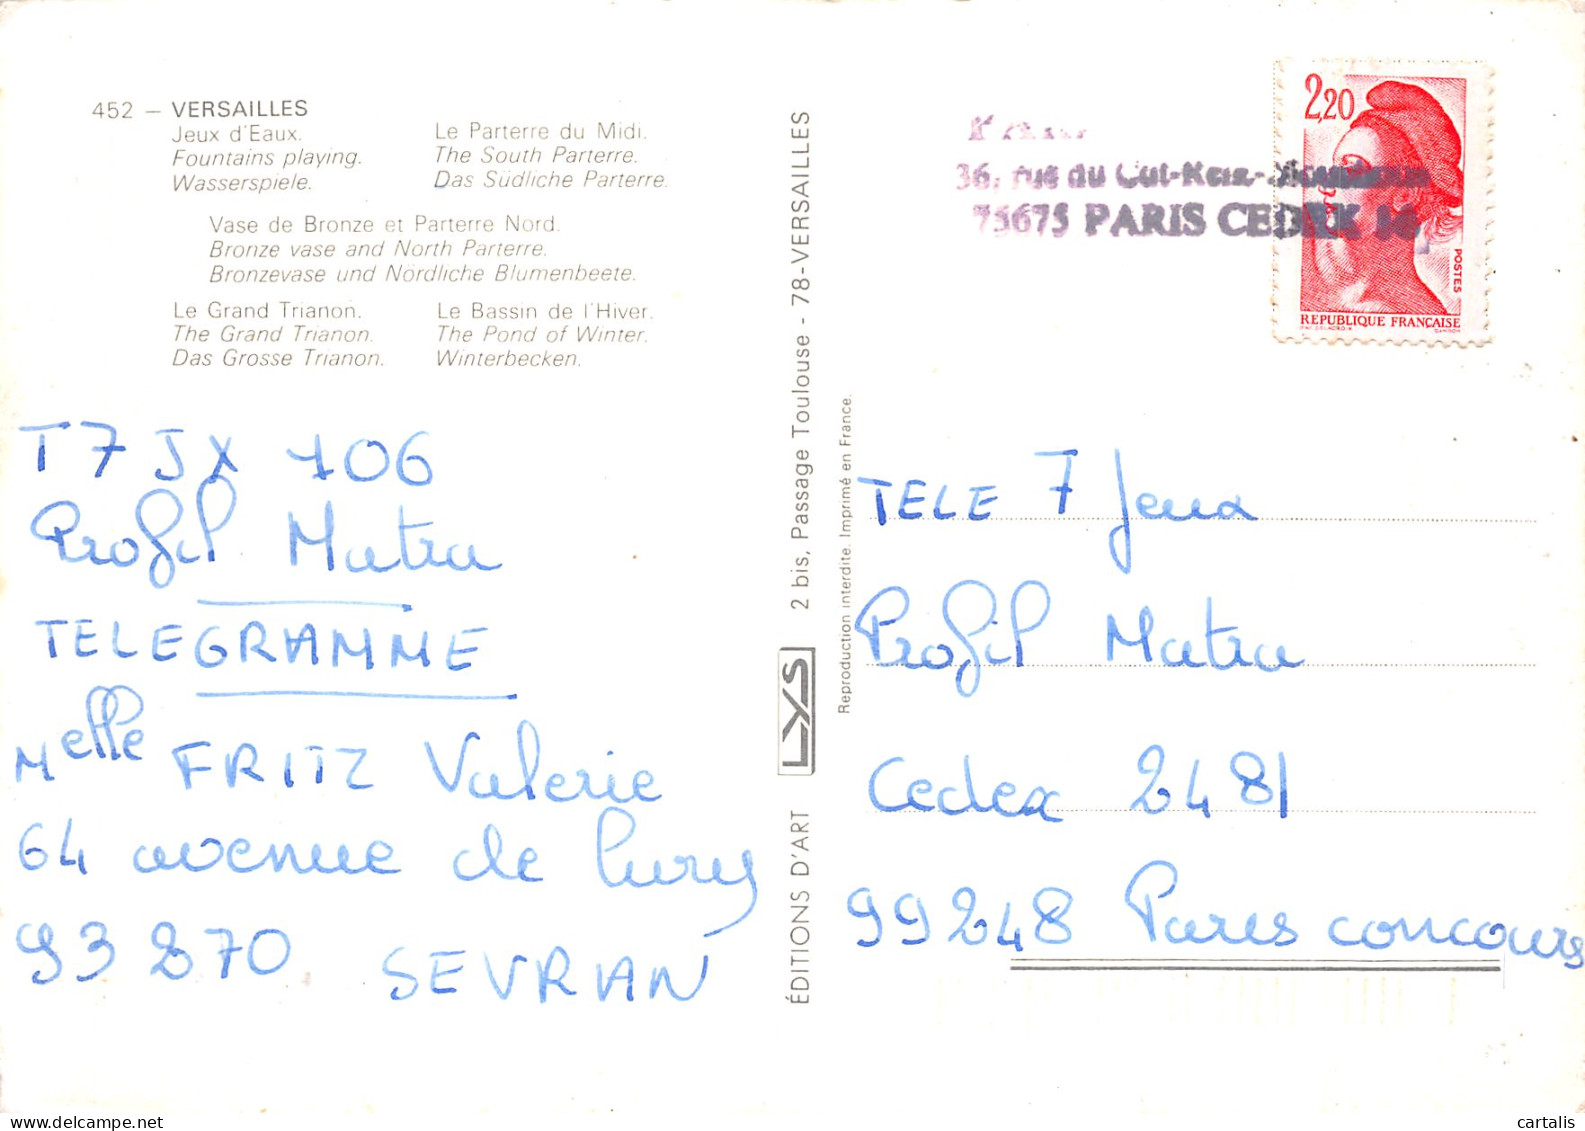 452 — VERSAILLES
Jeux d'Eaux.
Fountains playing.
Wasserspiele.
Le Parterre du Midi.
The South Parterre.
Das Südliche Parterre.
Vase de Bronze et Parterre Nord.
Bronze vase and North Parterre.
Bronzevase und Nördliche Blumenbeete.
Le Grand Trianon.
The Grand Trianon.
Das Grosse Trianon.
Le Bassin de l'Hiver.
The Pond of Winter.
Winterbecken.
T7 JX 106
Profil Matra
TELEGRAMME
Melle FRITZ Valerie
64 avenue de
93 270 SEVRAN
ÉDITIONS D'ART LYS 2 bis, Passage Toulouse - 78-VERSAILLES
Reproduction interdite. Imprimé en France.
36, rue du
75675 PARIS CEDEX
2,20
POSTES
REPUBLIQUE FRANÇAISE
TELE 7 Jeux
Profil Matra
Cedex 2481
99248 Paris concours
cartalis